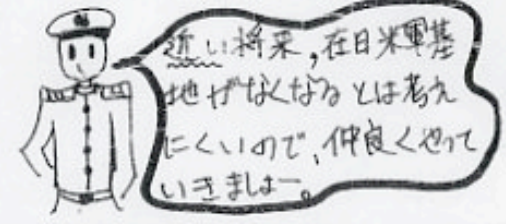 近い将来,在日米軍基
地がなくなるとは考え
にくいので、仲良くやって
いきましょー。